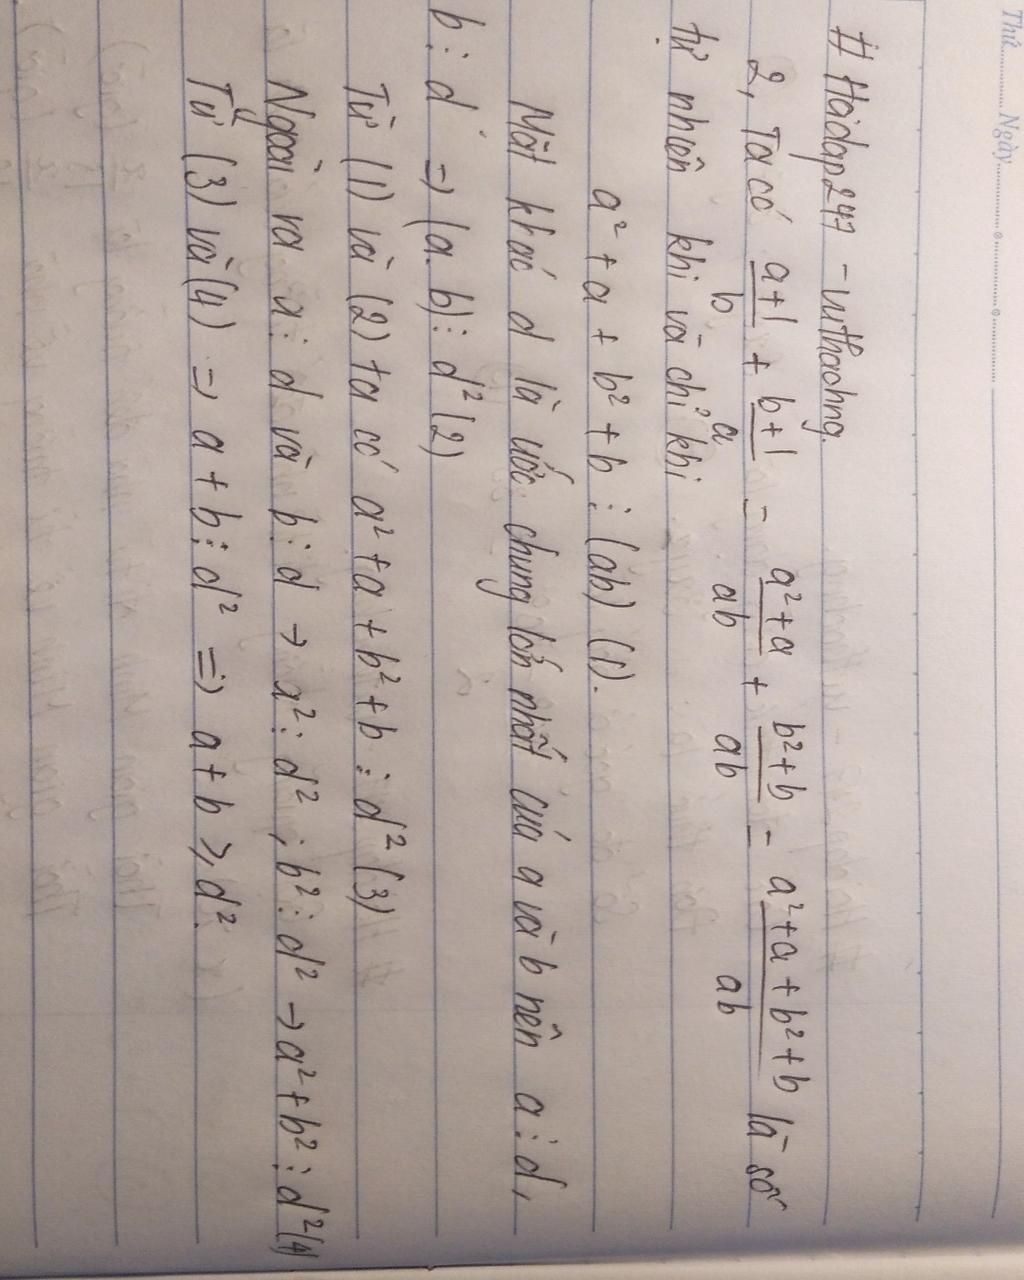 Thứ Ngày
# Hoidap247 - vuthachng.
2, Ta có a+1/b + b+1/a = a²+a/ab + b²+b/ab = a²+a+b²+b/ab là số
tự nhiên khi và chỉ khi
a² + a + b² + b ⋮ (ab) (1).
Mặt khác d là ước chung lớn nhất của a và b nên a ⋮ d,
b ⋮ d => (a.b) ⋮ d² (2)
Từ (1) và (2) ta có a² + a + b² + b ⋮ d² (3)
Ngoài ra a ⋮ d và b ⋮ d → a² ⋮ d² ; b² ⋮ d² → a² + b² ⋮ d² (4)
Từ (3) và (4) => a + b ⋮ d² => a + b ≥ d².